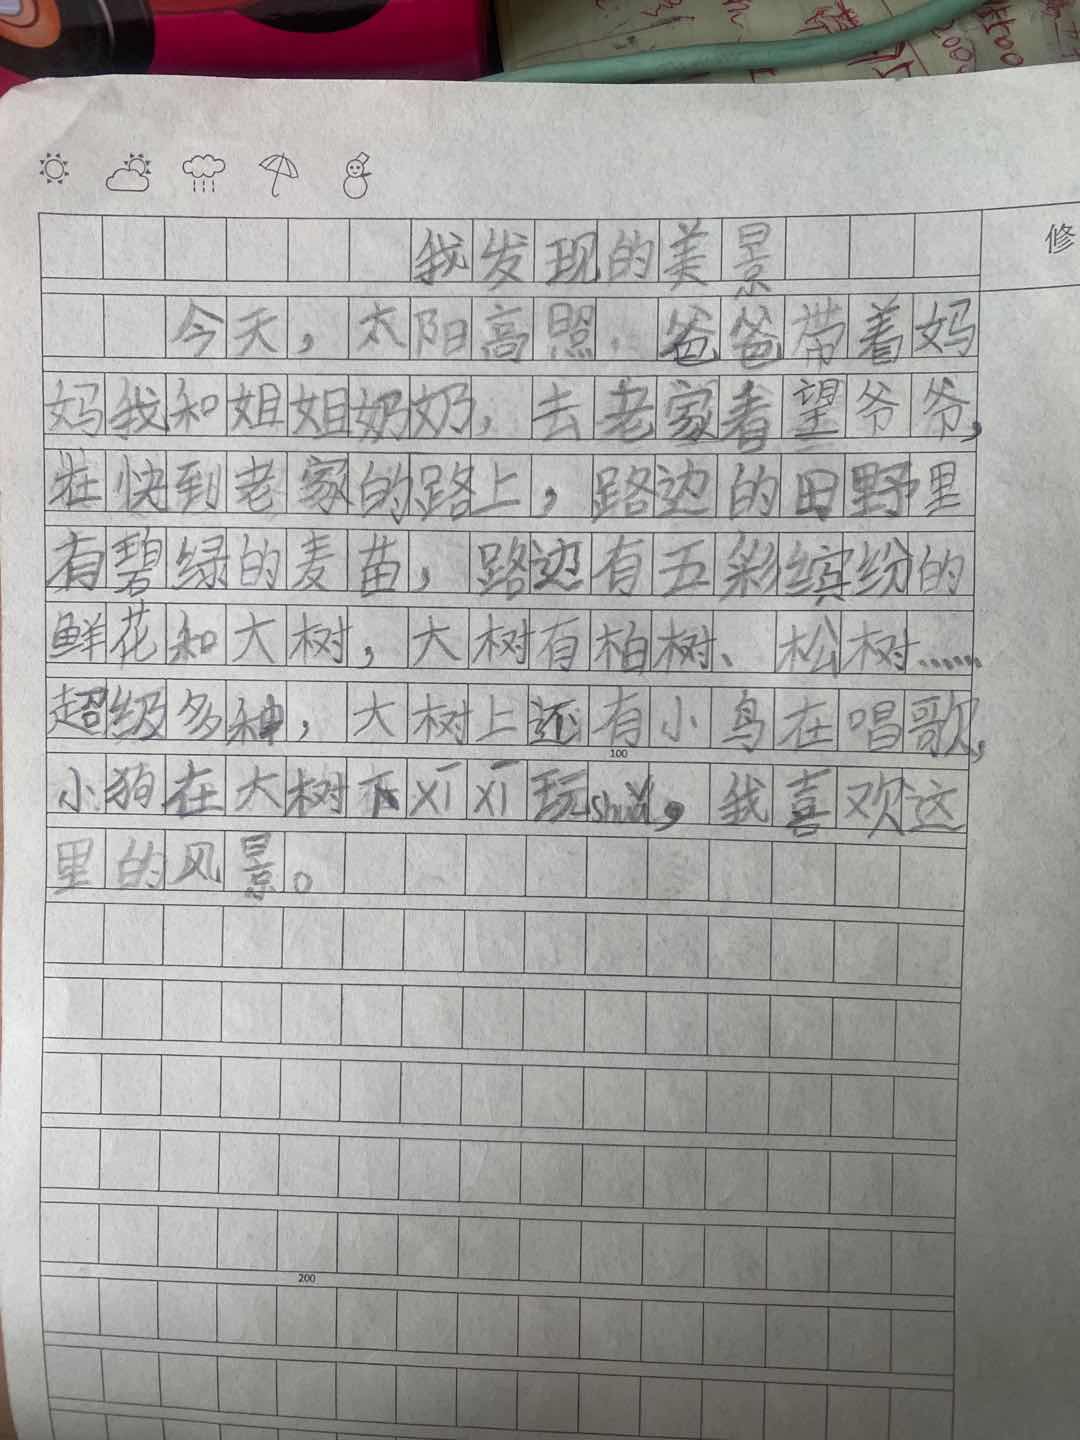 我发现的美景
今天，太阳高照，爸爸带着妈
妈我和姐姐奶奶，去老家看望爷爷，
在快到老家的路上，路边的田野里
有碧绿的麦苗，路边有五彩缤纷的
鲜花和大树，大树有柏树、松树……
超级多种，大树上还有小鸟在唱歌，
100
小狗在大树下xī xī玩shuǎ，我喜欢这
里的风景。
200
修